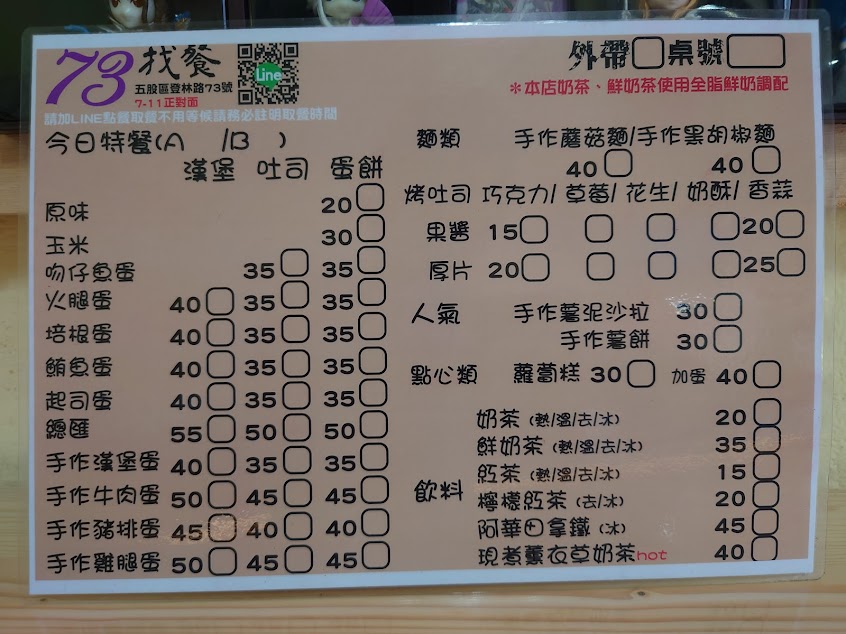 73 找餐
Line
五股區登林路73號
7-11正對面
請加LINE點餐取餐不用等候請務必註明取餐時間
外帶 桌號
*本店奶茶、鮮奶茶使用全脂鮮奶調配
今日特餐(A /B )
漢堡 吐司 蛋餅
原味 20
玉米 30
吻仔魚蛋 35 35
火腿蛋 40 35 35
培根蛋 40 35 35
鮪魚蛋 40 35 35
起司蛋 40 35 35
總匯 55 50 50
手作漢堡蛋 40 35 35
手作牛肉蛋 50 45 45
手作豬排蛋 45 40 40
手作雞腿蛋 50 45 45
麵類 手作蘑菇麵/手作黑胡椒麵
40 40
烤吐司 巧克力/ 草莓/ 花生/ 奶酥/ 香蒜
果醬 15 20
厚片 20 25
人氣 手作薯泥沙拉 30
手作薯餅 30
點心類 蘿蔔糕 30 加蛋 40
飲料
奶茶 (熱/溫/去/冰) 20
鮮奶茶 (熱/溫/去/冰) 35
紅茶 (熱/溫/去/冰) 15
檸檬紅茶 (去/冰) 20
阿華田拿鐵 (冰) 45
現煮薰衣草奶茶hot 40